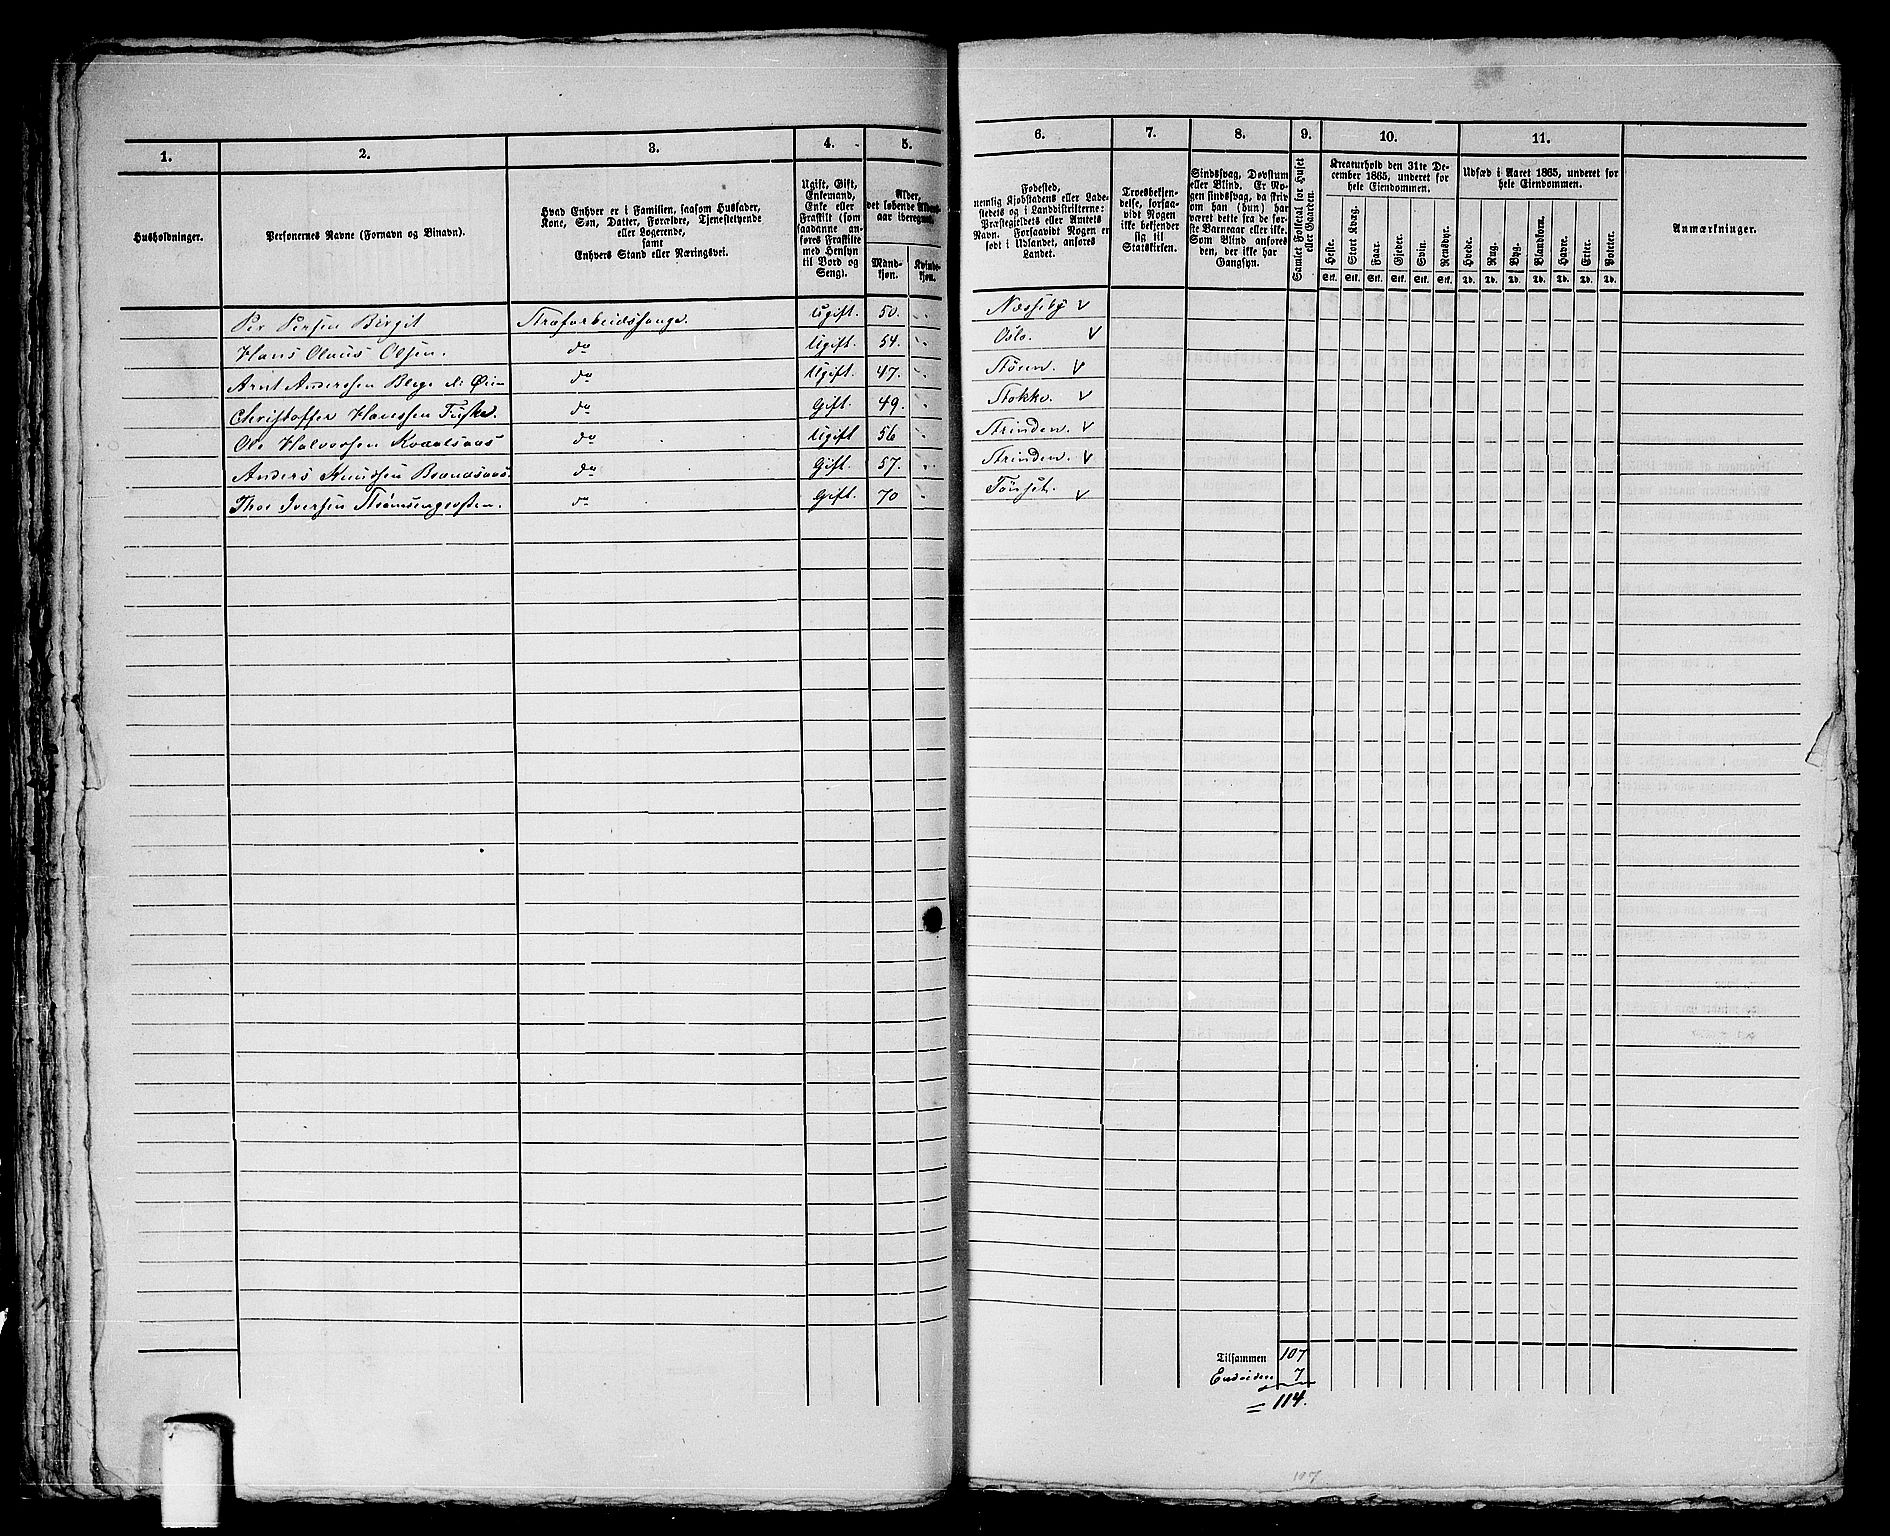 1. 2. 3. 4. 5. 6. 7. 8. 9. 10. 11.
Husholdninger.
Personernes Navne (Fornavn og Binavn).
Hvad Enhver er i Familien, saasom Husfader,
Kone, Søn, Datter, Forældre, Tjenestetyende
eller Logerende,
samt
Enhvers Stand eller Næringsvei.
Ugift, Gift,
Enkemand,
Enke eller
Fraskilt (som
saadanne an-
føres Fraskilte
med Hensyn
til Bord og
Seng).
Alder,
det løbende Alders-
aar iberegnet.
Mand-
kjøn.
Kvinde-
kjøn.
Fødested,
nemlig Kjøbstadens eller Lade-
stedets og i Landdistrikterne:
Præstegjeldets eller Amtets
Navn. Forsaavidt Nogen er
født i Udlandet, anføres
Landet.
Troesbekjen-
delse, forsaa-
vidt Nogen
ikke bekjender
sig til
Statskirken.
Sindssvag, Døvstum
eller Blind. Er No-
gen sindssvag, da skriv
om han (hun) har
været dette fra de før-
ste Barneaar eller ikke.
Som Blind anføres
den, der ikke har
Gangsyn.
Samlet Folketal for Huset
eller Gaarden.
Kreaturhold den 31te De-
cember 1865, underet for
hele Eiendommen.
Heste. Stort Kvæg. Faar. Gjeder. Svin. Rensdyr.
Stk. Stk. Stk. Stk. Stk. Stk.
Udsæd i Aaret 1865, underet for
hele Eiendommen.
Hvede. Rug. Byg. Blandkorn. Havre. Erter. Poteter.
Td. Td. Td. Td. Td. Td. Td.
Anmærkninger.
Per Persen Birgit Strafarbeidsfange. Ugift. 50. Næsseby
Hans Claus Olsen. do Ugift. 54. Oslo.
Arnt Anderssen Berge do Ugift. 47. Stören.
Christoffer Hanssen do Gift. 49. Stokke.
Ole Halvorsen do Ugift 56 Strinden.
Anders Knudsen do Gift. 57. Strinden.
Iversen do Gift. 70 Tönset.
Tilsammen 107
7
= 114.
107